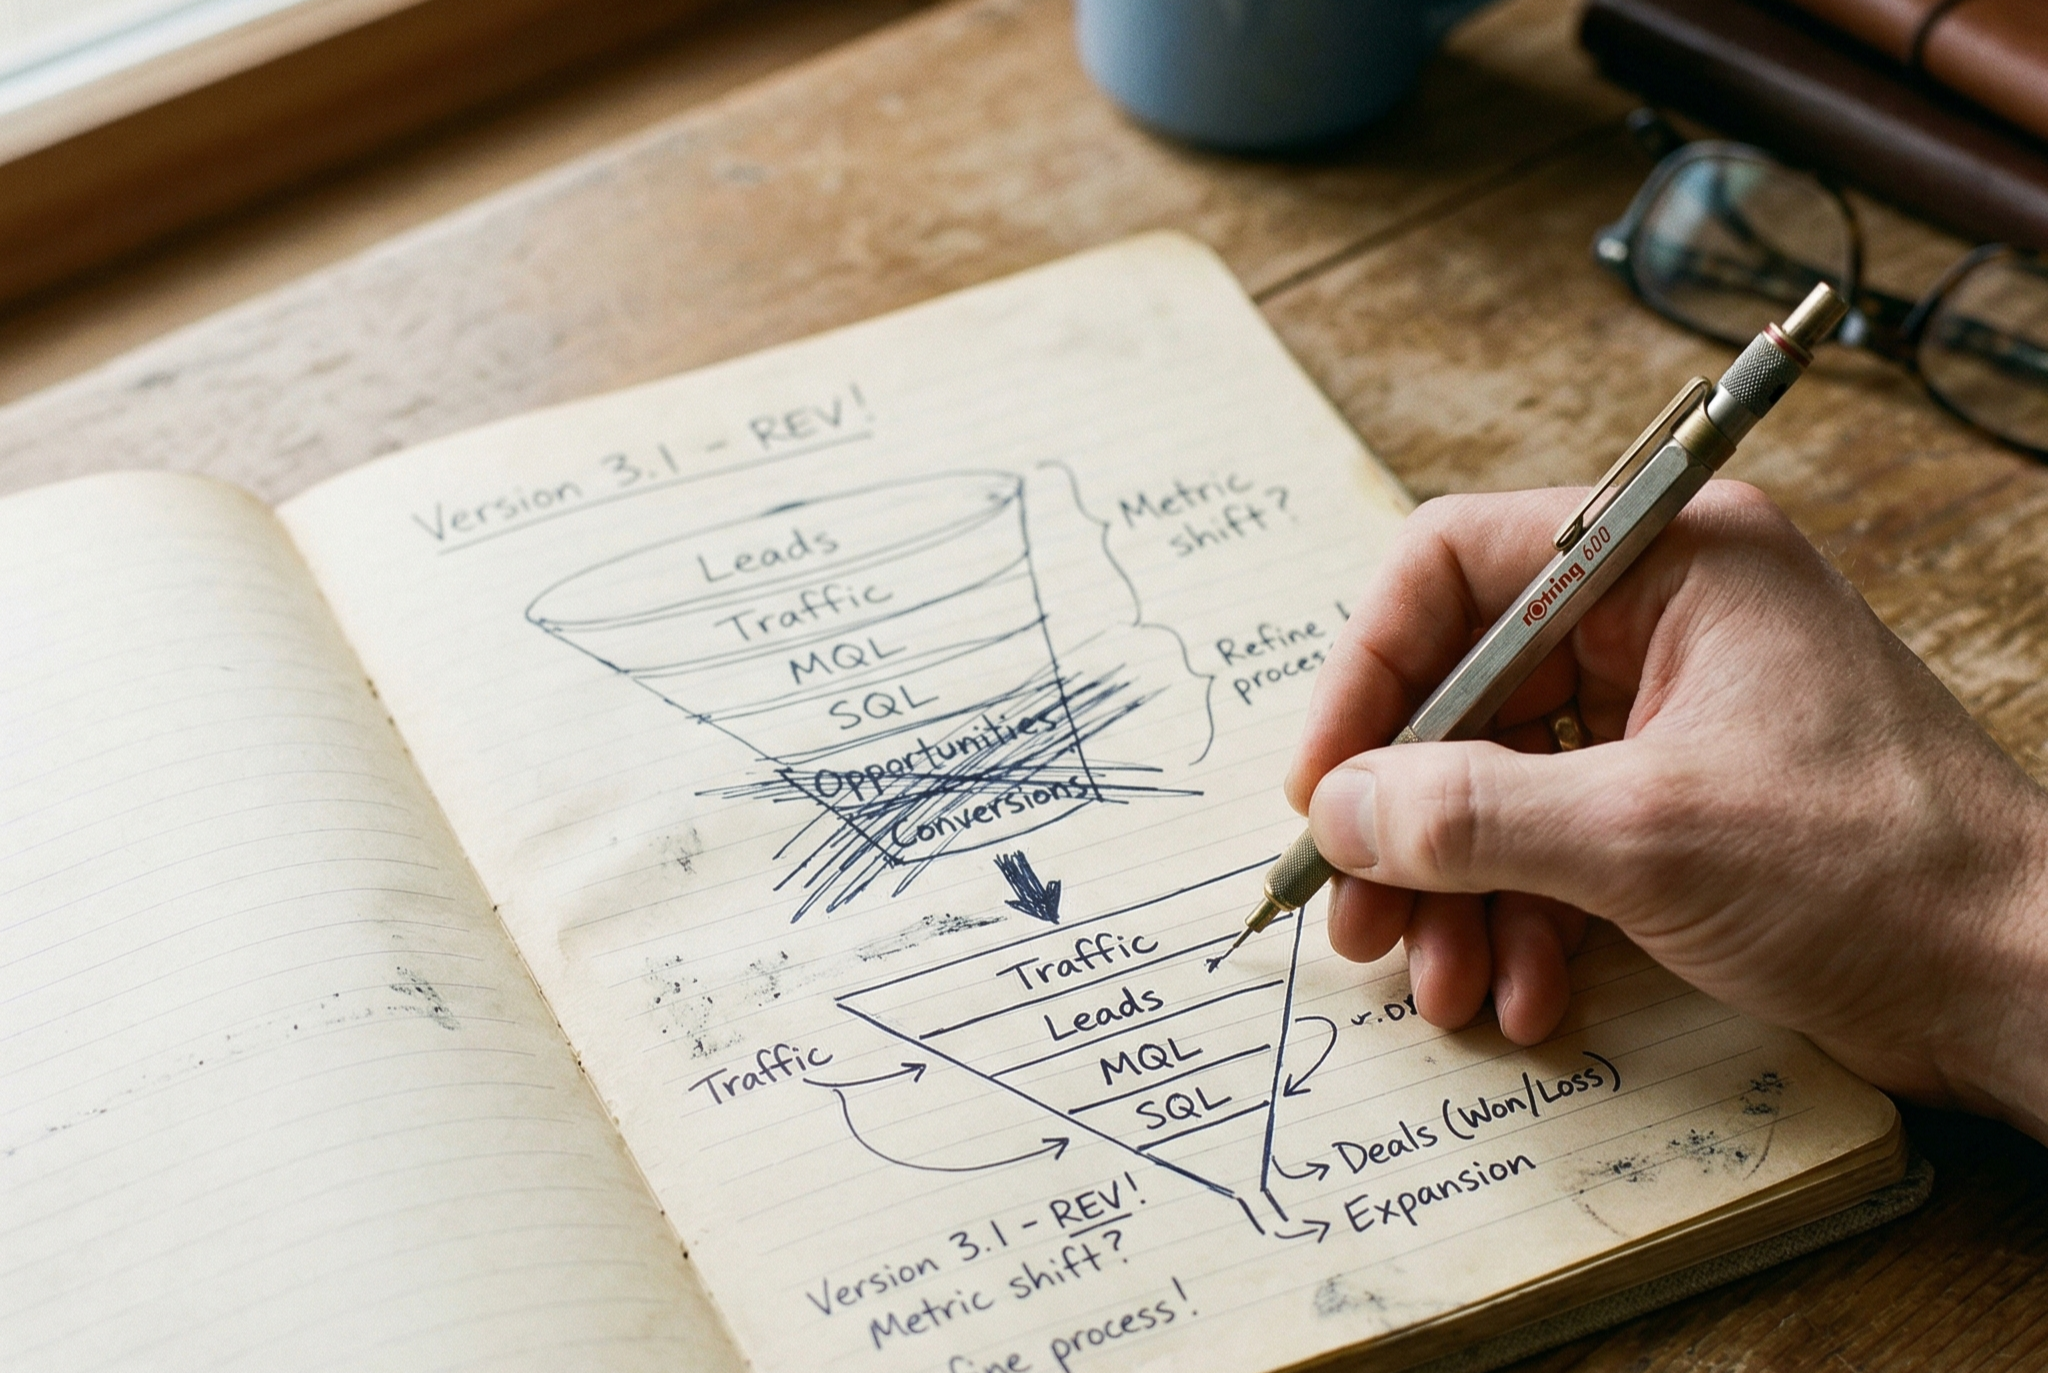 Version 3.1 - REV!
Leads
Traffic
MQL
SQL
Opportunities
Conversions
Metric
shift?
Refine
process
rOtring 600
Traffic
Leads
MQL
SQL
Traffic
Deals (Won/Loss)
Expansion
Version 3.1 - REV!
Metric shift?
process!